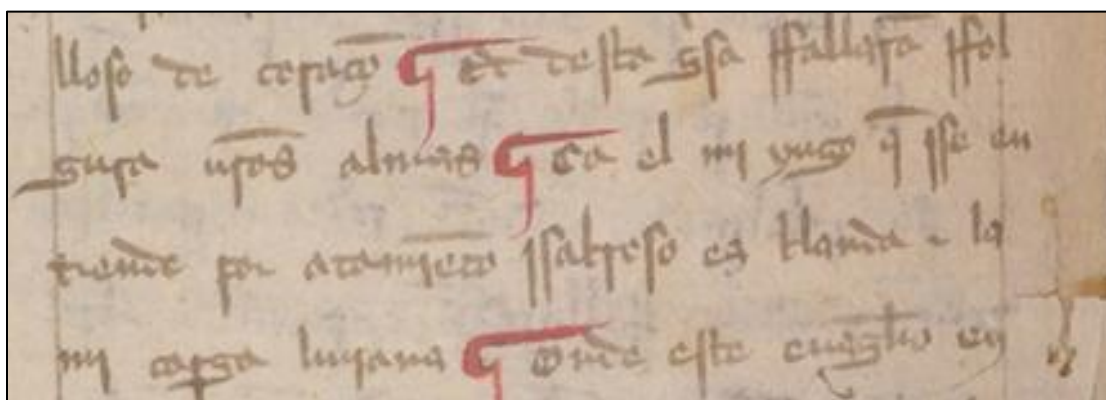 lloso de coraçõ ¶ Et desta gͥsa ffallarã ffol
gura ur̃as almas ¶ Ca el mi yugo q̃ sse en
tiende por atamiẽto ssabroso es blando ⁊ la
mi carga liuiana ¶ Onde este euãglio en